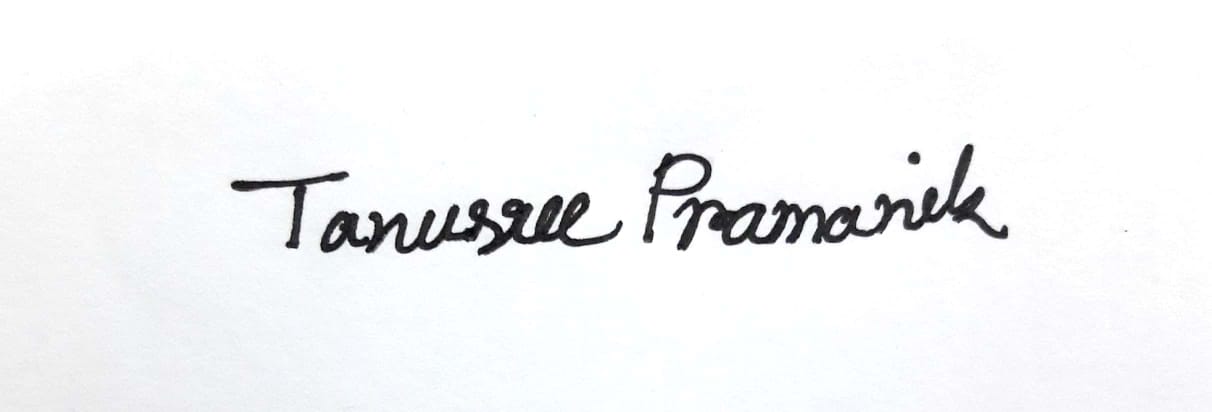 Tanusree Pramanik